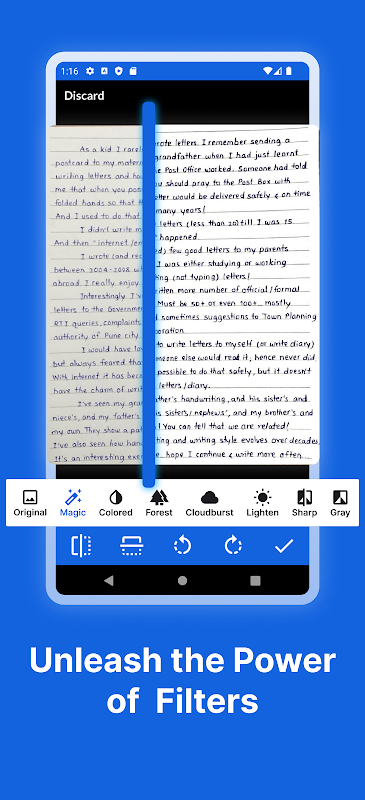 1:16
Discard
As a kid I rarely wrote letters. I remember sending a
postcard to my maternal grandfather when I had just learnt
writing letters and how the Post Office worked. Someone had told
me that when you post you should pray to the Post Box with
folded hands so that the letter would be delivered safely & on time
And I used to do that many years!
I didn't write letters (less than 20) till I was 15
And then "internet/em happened
I wrote (and rec ed) few good letters to my parents
between 2004-2008 I was either studying or working
abroad. I really enjoy king (not typing) letters!
Interestingly I've itten more number of official/formal
letters to the Government Must be 50+ or even 100+ mostly
RTI queries, complaints sometimes suggestions to Town Planning
authority of Pune city oration
I would have lov to write letters to myself (or write diary)
but always feared tha omeone else would read it, hence never did.
With internet it has beco possible to do that safely, but it doesn't
have the charm of writ letters/diary.
I've seen my gran ather's handwriting, and his sister's and
niece's, and my father's is sisters/nephews', and my brother's and
my own. They show a pat ! You can tell that we are related!
I've also seen how hand ting and writing style evolves over decades
It's an interesting exer hope I continue & write more often
Original Magic Colored Forest Cloudburst Lighten Sharp Gray
Unleash the Power
of Filters